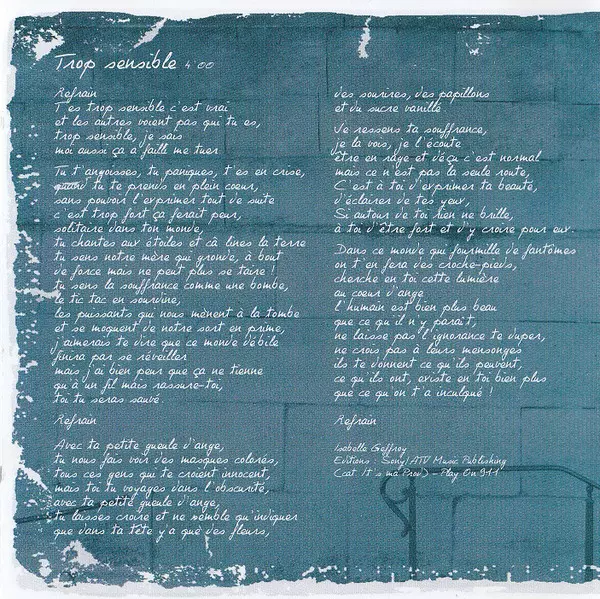 Trop sensible 4'00
Refrain
T'es trop sensible c'est vrai
et les autres voient pas qui tu es,
trop sensible, je sais
moi aussi ça a faille me tuer
Tu t'angoisses, tu paniques, t'es en crise,
quand tu te prends en plein coeur,
sans pouvoir l'exprimer tout de suite
c'est trop fort ça ferait peur,
solitaire dans ton monde,
tu chantes aux étoiles et câlines la terre
tu sens notre mère qui gronde, à bout
de force mais ne peut plus se taire !
tu sens la souffrance comme une bombe,
le tic tac en sourdine,
les puissants qui nous mènent à la tombe
et se moquent de notre sort en prime,
j'aimerais te dire que ce monde débile
finira par se réveiller
mais j'ai bien peur que ça ne tienne
qu'à un fil mais rassure-toi,
toi tu seras sauvé.
Refrain
Avec ta petite gueule d'ange,
tu nous fais voir des masques colorés,
tous ces gens qui te croient innocent,
mais toi tu voyages dans l'obscurité,
avec ta petite gueule d'ange,
tu laisses croire et ne semble qu'indiquer
que dans ta tête y a que des fleurs,
des sourires, des papillons
et du sucre vanillé.
Je ressens ta souffrance,
je la vois, je l'écoute
être en rage et déçu c'est normal
mais ce n'est pas la seule route,
C'est à toi d'exprimer ta beauté,
d'éclairer de tes yeux,
Si autour de toi rien ne brille,
à toi d'être fort et d'y croire pour eux.
Dans ce monde qui fourmille de fantômes
on t'en fera des croche-pieds,
cherche en toi cette lumière
au coeur d'ange
l'humain est bien plus beau
que ce qu'il n'y paraît,
ne laisse pas l'ignorance te duper,
ne crois pas à leurs mensonges
ils te donnent ce qu'ils peuvent,
ce qu'ils ont, existe en toi bien plus
que ce qu'on t'a inculqué !
Refrain
Isabelle Geffroy
Editions : Sony/ATV Music Publishing
(cat. It's ma Prod) - Play On 911